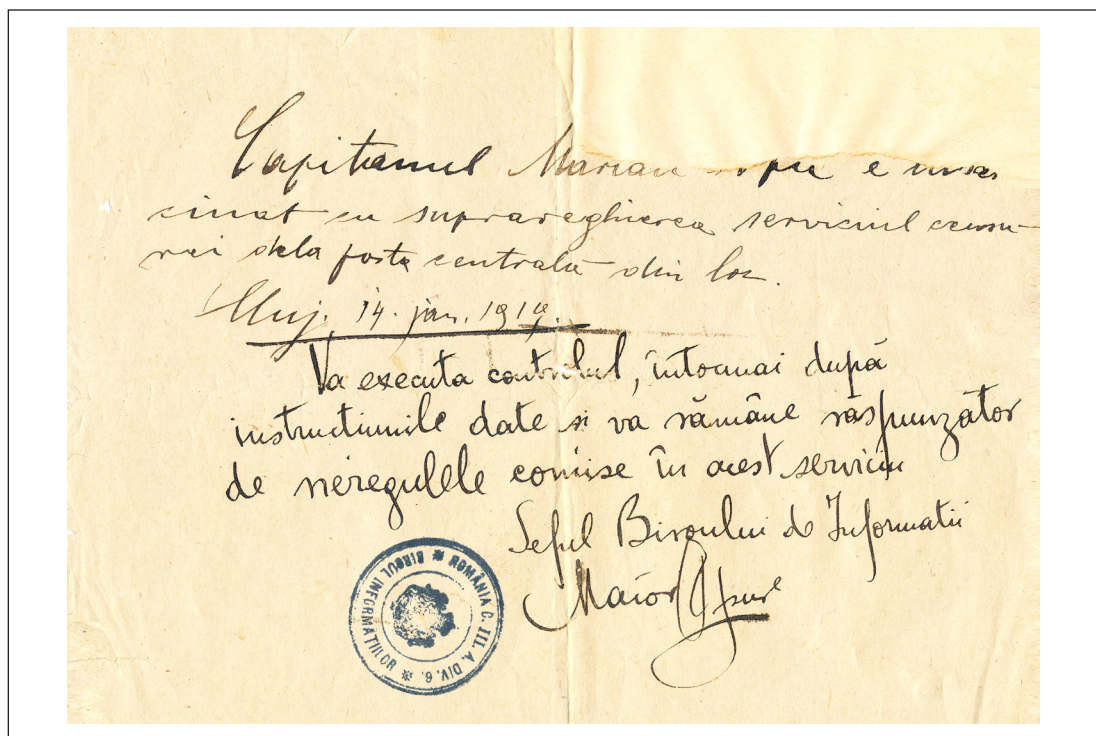 Capitanul Marian e însăr
cinat cu supraveghierea serviciul cenzu-
rei dela posta centrală din loc.
Cluj, 14. jan. 1919.
Va executa controlul, întocmai după
instructiunile date si va rămâne răspunzător
de neregulele comise în acest serviciu
Seful Biroului de Informatii
Maior
ROMÂNIA C. III. A. DIV. 6. * BIROUL INFORMATIILOR *